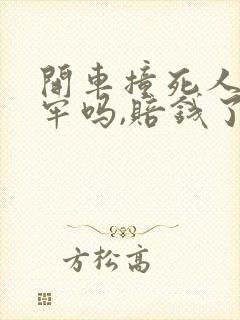 開車撞死人
牢吗,賠錢了
方松高